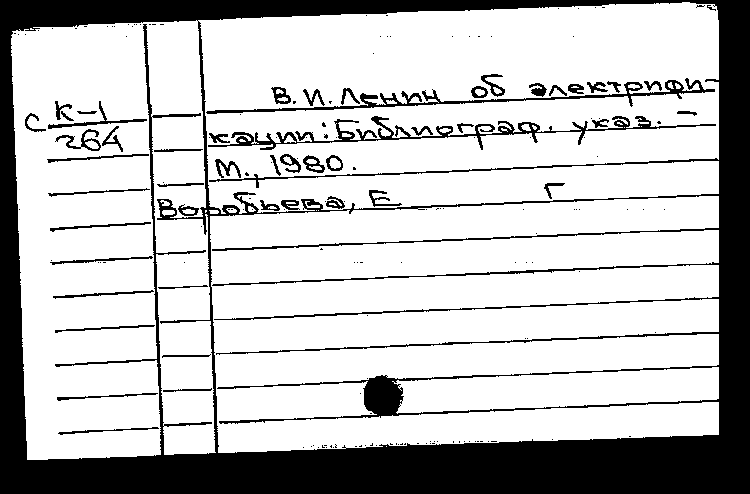 В.И. Ленин об электрифи-
С К-1
264
кации: Библиограф. указ. -
М., 1980.
Воробьева, Е Г